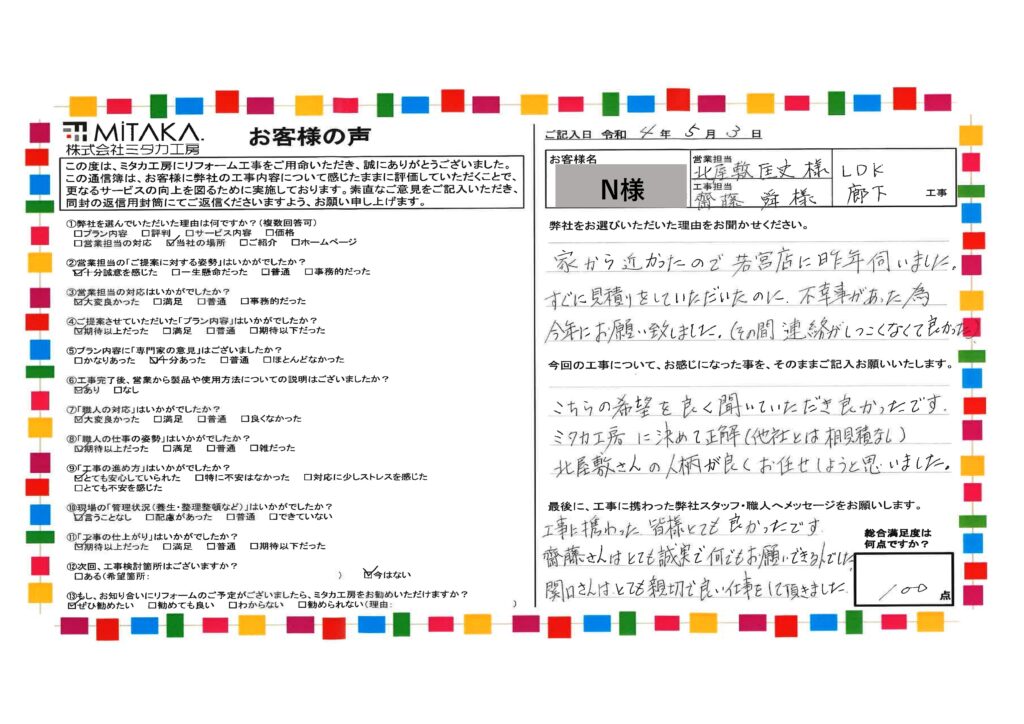 MiTAKA.
株式会社ミタカ工房
お客様の声
この度は、ミタカ工房にリフォーム工事をご用命いただき、誠にありがとうございました。
この通信簿は、お客様に弊社の工事内容について感じたままに評価していただくことで、
更なるサービスの向上を図るために実施しております。素直なご意見をご記入いただき、
同封の返信用封筒にてご返信くださいますよう、お願い申し上げます。
①弊社を選んでいただいた理由は何ですか?(複数回答可)
□プラン内容 □評判 □サービス内容 □価格
□営業担当の対応 ☑当社の場所 □ご紹介 □ホームページ
②営業担当の「ご提案に対する姿勢」はいかがでしたか?
☑十分誠意を感じた □一生懸命だった □普通 □事務的だった
③営業担当の対応はいかがでしたか?
☑大変良かった □満足 □普通 □事務的だった
④ご提案させていただいた「プラン内容」はいかがでしたか?
☑期待以上だった □満足 □普通 □期待以下だった
⑤プラン内容に「専門家の意見」はございましたか?
□かなりあった ☑十分あった □普通 □ほとんどなかった
⑥工事完了後、営業から製品や使用方法についての説明はございましたか?
☑あり □なし
⑦「職人の対応」はいかがでしたか?
☑大変良かった □満足 □普通 □良くなかった
⑧「職人の仕事の姿勢」はいかがでしたか?
☑期待以上だった □満足 □普通 □雑だった
⑨「工事の進め方」はいかがでしたか?
☑とても安心していられた □特に不安はなかった □対応に少しストレスを感じた
□とても不安を感じた
⑩現場の「管理状況(養生・整理整頓など)」はいかがでしたか?
☑言うことなし □配慮があった □普通 □できていない
⑪「工事の仕上がり」はいかがでしたか?
☑期待以上だった □満足 □普通 □期待以下だった
⑫次回、工事検討箇所はございますか?
□ある(希望箇所: ) ☑今はない
⑬もし、お知り合いにリフォームのご予定がございましたら、ミタカ工房をお勧めいただけますか?
☑ぜひ勧めたい □勧めても良い □わからない □勧められない(理由: )
ご記入日 令和 4 年 5 月 3 日
お客様名
N様
営業担当
北屋敷 匡史 様
工事担当
齋藤 舜 様
LDK
廊下 工事
弊社をお選びいただいた理由をお聞かせください。
家から近かったので若宮店に昨年伺いました。
すぐに見積りをしていただいたのに、不幸事があった為
今年にお願い致しました。(その間 連絡がしつこくなくて良かった)
今回の工事について、お感じになった事を、そのままご記入お願いいたします。
こちらの希望を良く聞いていただき良かったです。
ミタカ工房に決めて正解(他社とは相見積なし)
北屋敷さんの人柄が良くお任せしようと思いました。
最後に、工事に携わった弊社スタッフ・職人へメッセージをお願いします。
工事に携わった 皆様とても良かったです。
齋藤さんはとても誠実で何でもお願いできるんでした
関口さんは、とても親切で良い仕事をして頂きました。
総合満足度は
何点ですか?
100 点